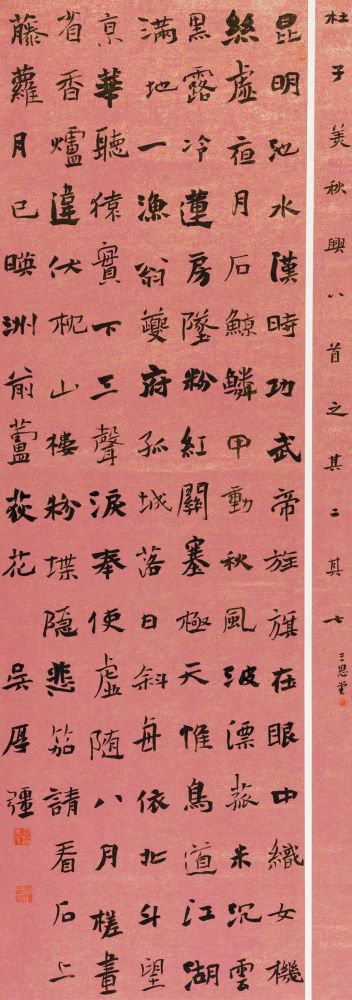 杜子美秋興八首之其二其七
三思堂
昆明池水漢時功武帝旌旗在眼中織女機
絲虛夜月石鯨鱗甲動秋風波漂菰米沉雲
黑露冷蓮房墜粉紅關塞極天惟鳥道江湖
滿地一漁翁夔府孤城落日斜每依北斗望
京華聽猿實下三聲淚奉使虛隨八月槎畫
省香爐違伏枕山樓粉堞隱悲笳請看石上
藤蘿月已暎洲前蘆荻花
吳厚疆